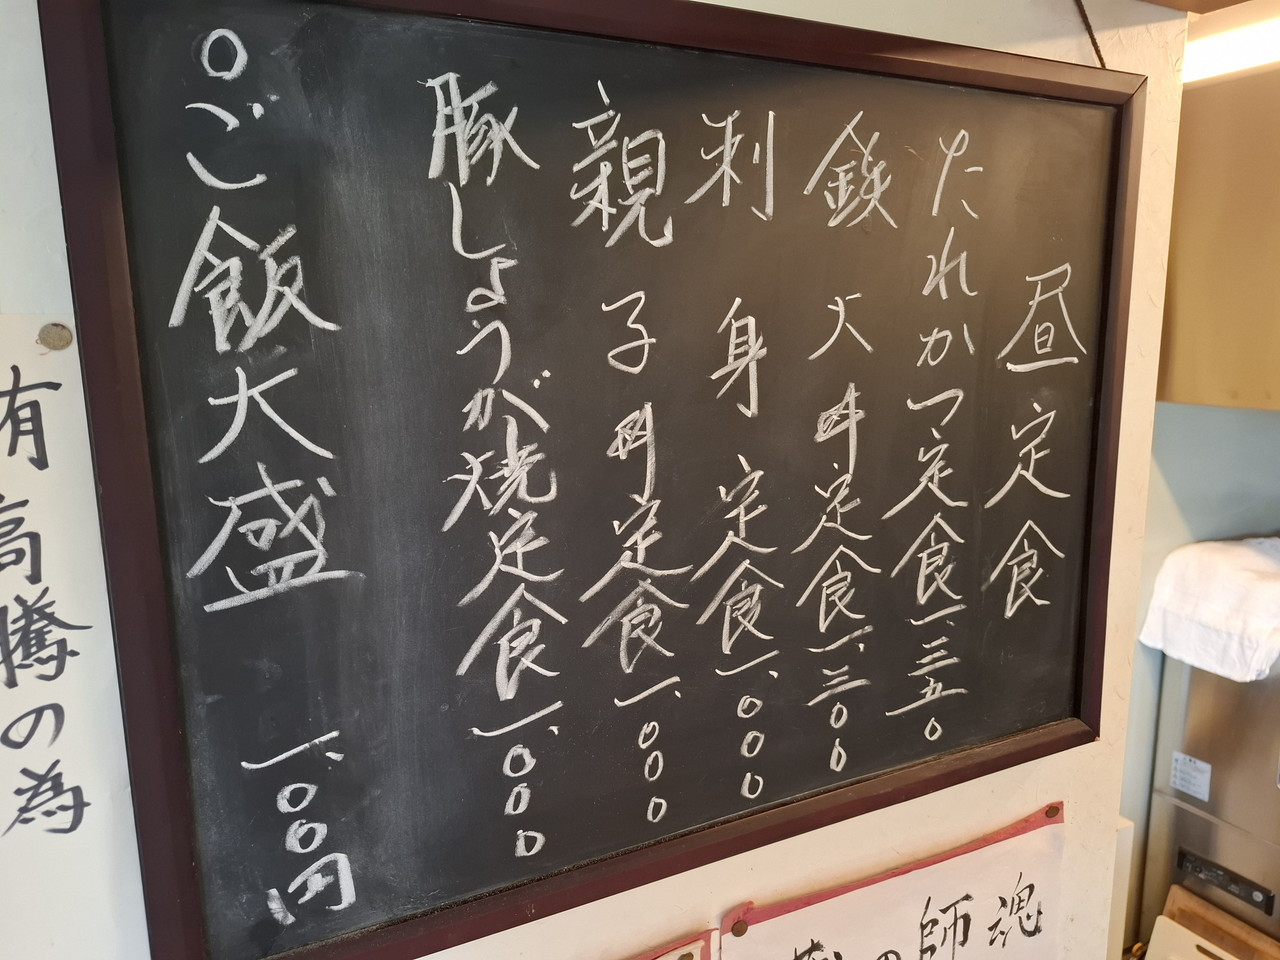 昼定食
たれかつ定食一、三五〇
鉄火丼定食一、三〇〇
刺身定食一、〇〇〇
親子丼定食一、〇〇〇
豚しょうが焼定食一、〇〇〇
○ご飯大盛 一、〇〇円
有高騰の為
の師魂